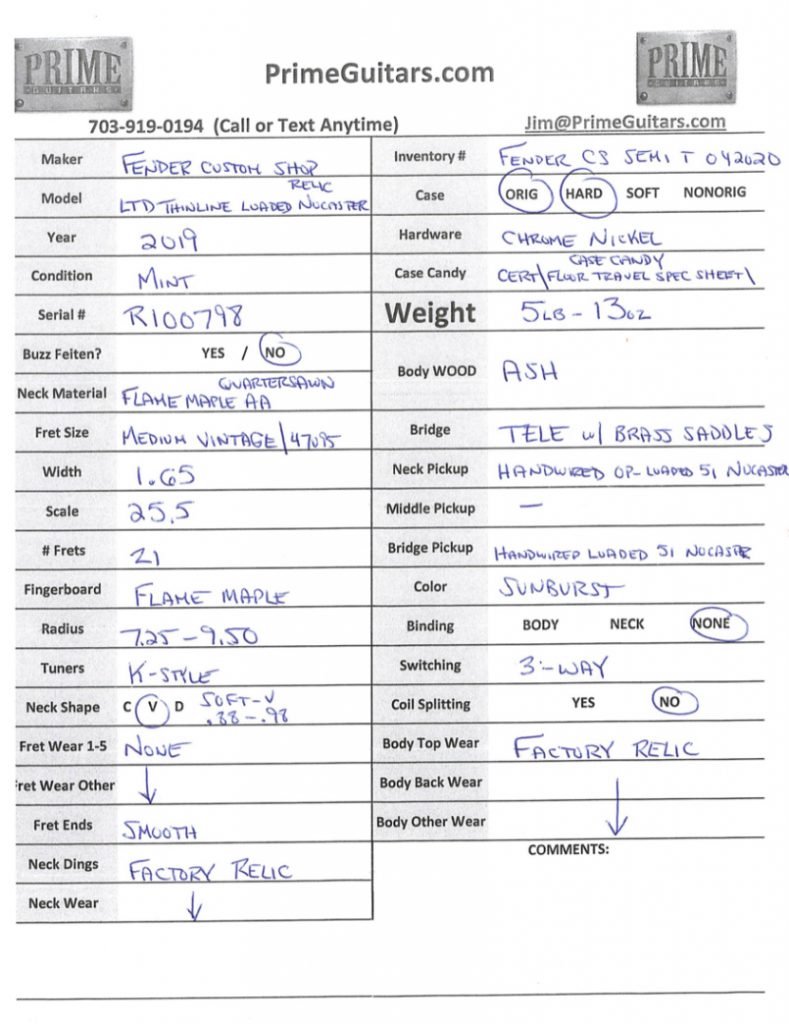 PRIME
GUITARS
PrimeGuitars.com
PRIME
GUITARS
703-919-0194 (Call or Text Anytime)
Jim@PrimeGuitars.com
Maker FENDER CUSTOM SHOP
Model LTD THINLINE LOADED RELIC NOCASTER
Year 2019
Condition MINT
Serial # R100798
Buzz Feiten? YES / NO
Neck Material FLAME MAPLE AA QUARTERSAWN
Fret Size MEDIUM VINTAGE/47095
Width 1.65
Scale 25.5
# Frets 21
Fingerboard FLAME MAPLE
Radius 7.25-9.50
Tuners K-STYLE
Neck Shape C V D SOFT-V
.88-.98
Fret Wear 1-5 NONE
Fret Wear Other ↓
Fret Ends SMOOTH
Neck Dings FACTORY RELIC
Neck Wear ↓
Inventory # FENDER CS SEMI T 042020
Case ORIG HARD SOFT NONORIG
Hardware CHROME NICKEL
CASE CANDY
Case Candy CERT\FLOOR TRAVEL SPEC SHEET\
Weight 5LB-13oz
Body WOOD ASH
Bridge TELE w/ BRASS SADDLES
Neck Pickup HANDWIRED OP-LOADED 51 NOCASTER
Middle Pickup —
Bridge Pickup HANDWIRED LOADED 51 NOCASTER
Color SUNBURST
Binding BODY NECK NONE
Switching 3-WAY
Coil Splitting YES NO
Body Top Wear FACTORY RELIC
Body Back Wear ↓
Body Other Wear
COMMENTS: